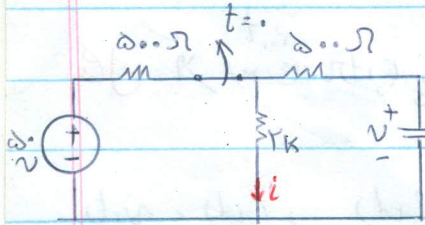 t=۰
۵۰۰ Ω
۵۰۰ Ω
+
۵۰
v
-
۲K
i
v
+
-